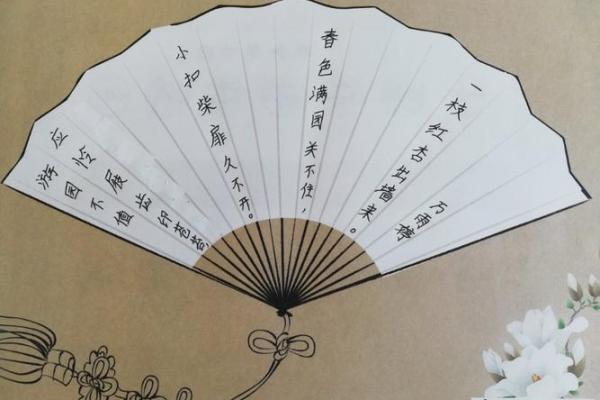 游园不值
应怜展齿印苍苔,
小扣柴扉久不开。
春色满园关不住,
一枝红杏出墙来。
万雨婷